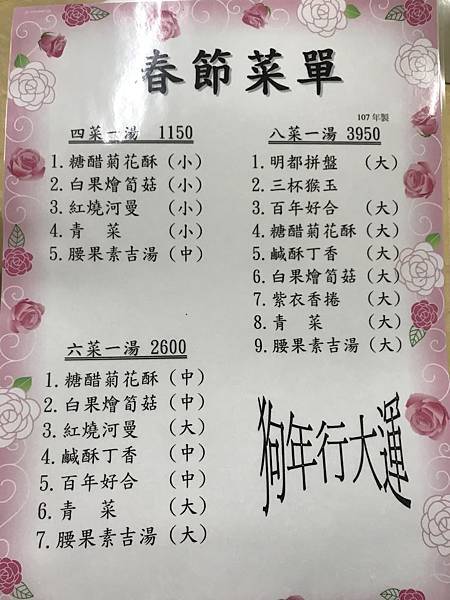 春節菜單
107年製
四菜一湯 1150
1. 糖醋菊花酥（小）
2. 白果燴筍菇（小）
3. 紅燒河曼（小）
4. 青 菜（小）
5. 腰果素吉湯（中）
六菜一湯 2600
1. 糖醋菊花酥（中）
2. 白果燴筍菇（中）
3. 紅燒河曼（大）
4. 鹹酥丁香（中）
5. 百年好合（中）
6. 青 菜（大）
7. 腰果素吉湯（大）
八菜一湯 3950
1. 明都拼盤（大）
2. 三杯猴玉
3. 百年好合（大）
4. 糖醋菊花酥（大）
5. 鹹酥丁香（大）
6. 白果燴筍菇（大）
7. 紫衣香捲（大）
8. 青 菜（大）
9. 腰果素吉湯（大）
狗年行大運